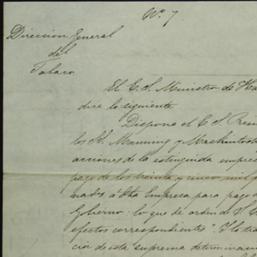 Nº. 7
Direccion General
del
Tabaco
El C. S. Ministro de Ha
dice lo siguiente
Dispone el C. S. Pres
los SS. Manning y Mackintosh
acciones de la estinguida empres
pago de los treinta y cinco mil p
nados á dha Empresa para pago
Gobierno; lo que de orden de S. E.
efectos correspondientes" Y lo tras
cion de esta suprema determinac